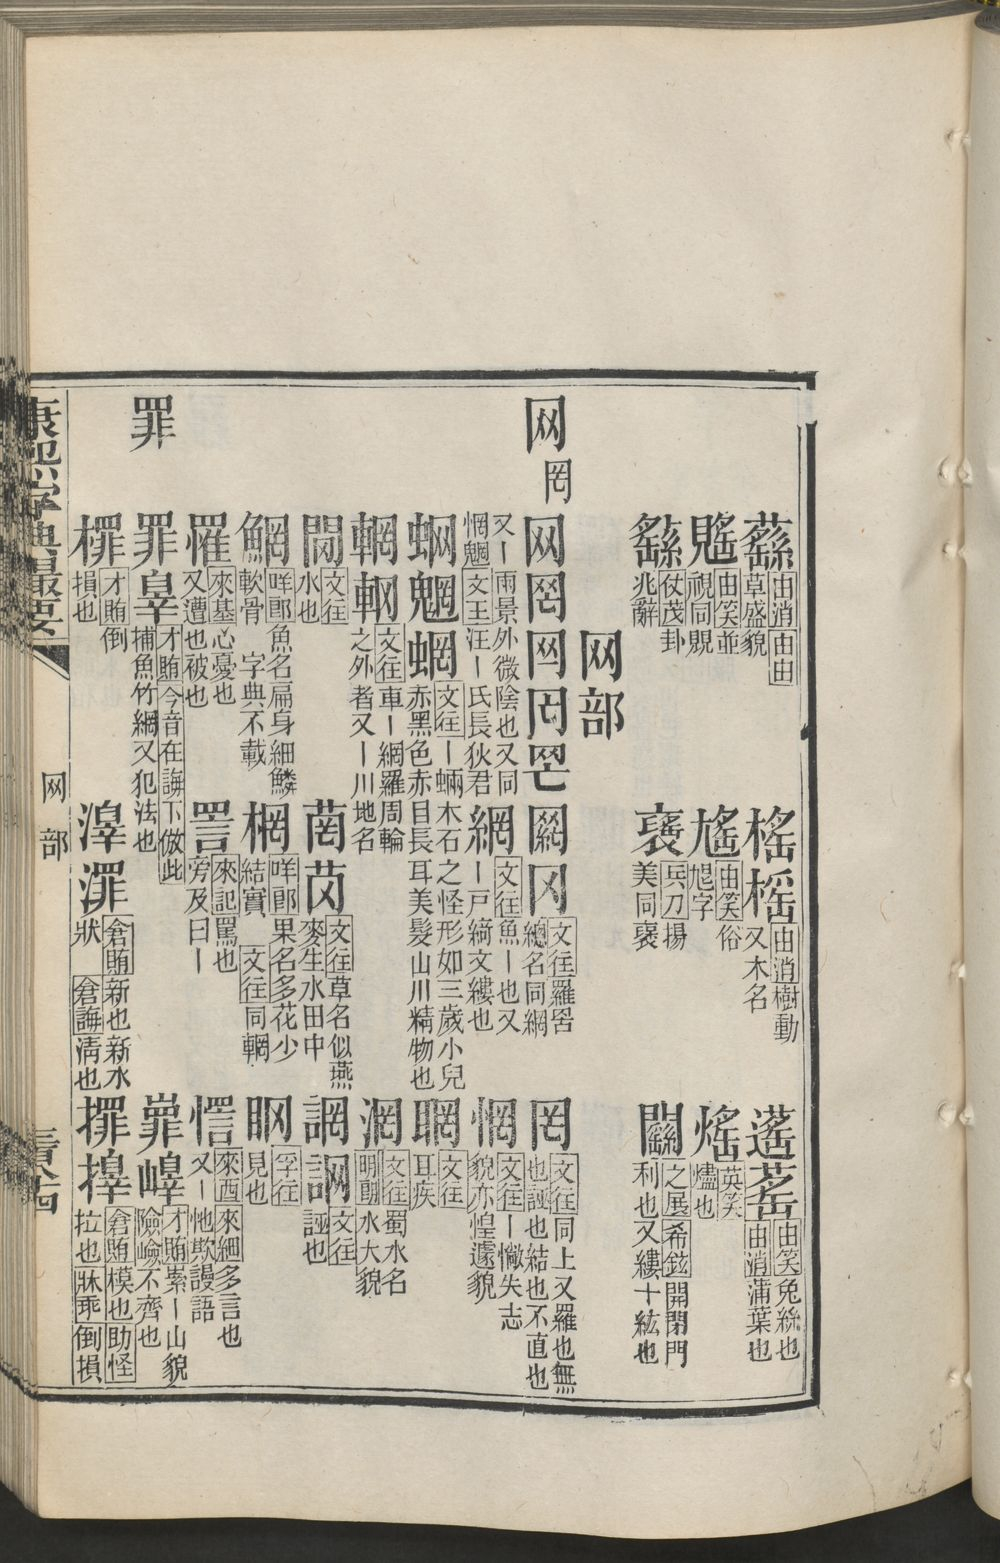 由消由由草盛貌
榣 由消樹動又木名
由笑兔絲也由消蒲葉也
由笑並視同覞
由笑俗字
英笑爐也
仗茂卦兆辭
襃 兵刀揚美同襃
之展希鉉開閉門利也又縷十紘也
网部
网
罔
网 文往羅罟總名同網
罔 文往同上又羅也無也誣也結也不直也
又丨兩景外微陰也又同惘魍文王汪丨氏長狄君
網 文往魚丨也又丨戸綺文縷也
惘 文往丨懒失志貌亦惶遽貌
蝄魍蝄 文往丨蜽木石之怪形如三歲小兒赤黑色赤目長耳美髮山川精物也
文往耳疾
輞 文往車丨網羅周輪之外者又丨川地名
文往蜀水名明朗水大貌
文往水也
菵 文往草名似燕麥生水田中
文往誣也
咩郎魚名扁身細鱗軟骨 字典不載
棢 咩郎果名多花少結實 文往同輞
孚往見也
罹 來基心憂也又遭也被也
詈 來記罵也旁及曰丨
來酉來細多言也又丨忚欺謾語
罪
罪辠 才賄今音在誨下倣此捕魚竹網又犯法也
才賄崇丨山貌險嶮不齊也
才賄倒損也
倉賄新也新水狀 倉誨清也
倉賄模也助怪拉也牀乖倒損
康熙字典撮要
网部
三百八十四